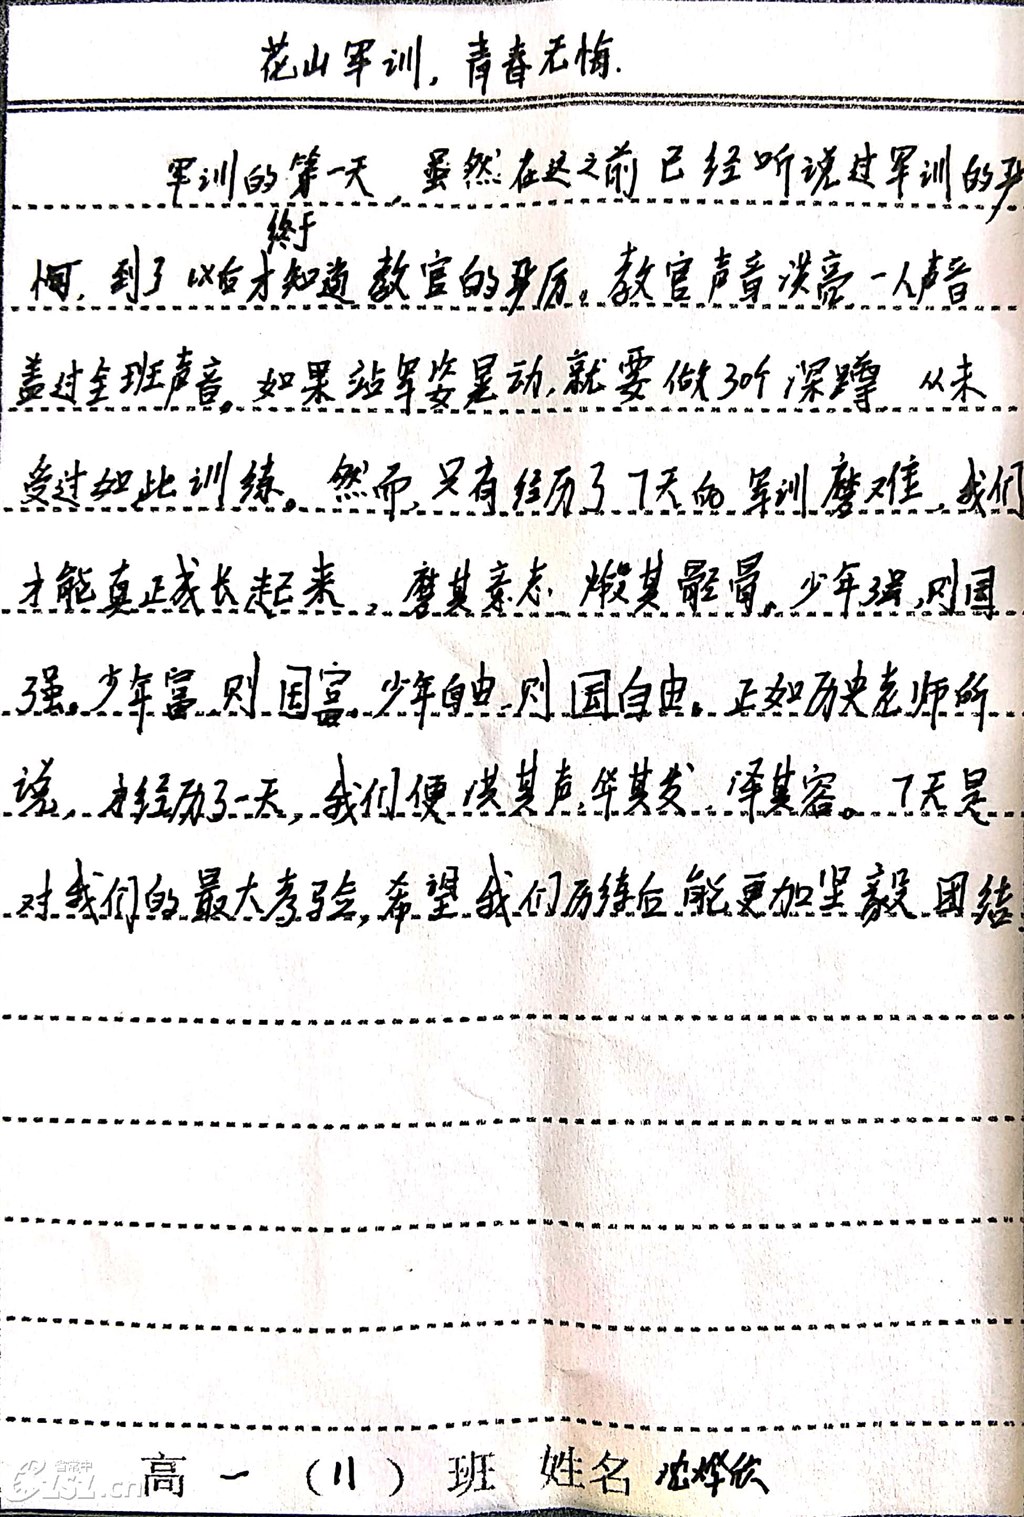 花山军训，青春无悔.
军训的第一天，虽然在这之前已经听说过军训的恐
怖，到了以后才终于知道教官的严厉。教官声音洪亮，一人声音
盖过全班声音。如果站军姿晃动，就要做30个深蹲，从未
受过如此训练。然而，只有经历了7天的军训磨难，我们
才能真正成长起来，磨其意志，煅其骼骨。少年强，则国
强。少年富，则国富，少年自由，则国自由。正如历史老师所
说，才经历了一天，我们便洪其声，华其发，泽其容。7天是
对我们的最大考验，希望我们历练后能更加坚毅，团结
高一（11）班 姓名 沈烨欣
省常中
CLSL.cn